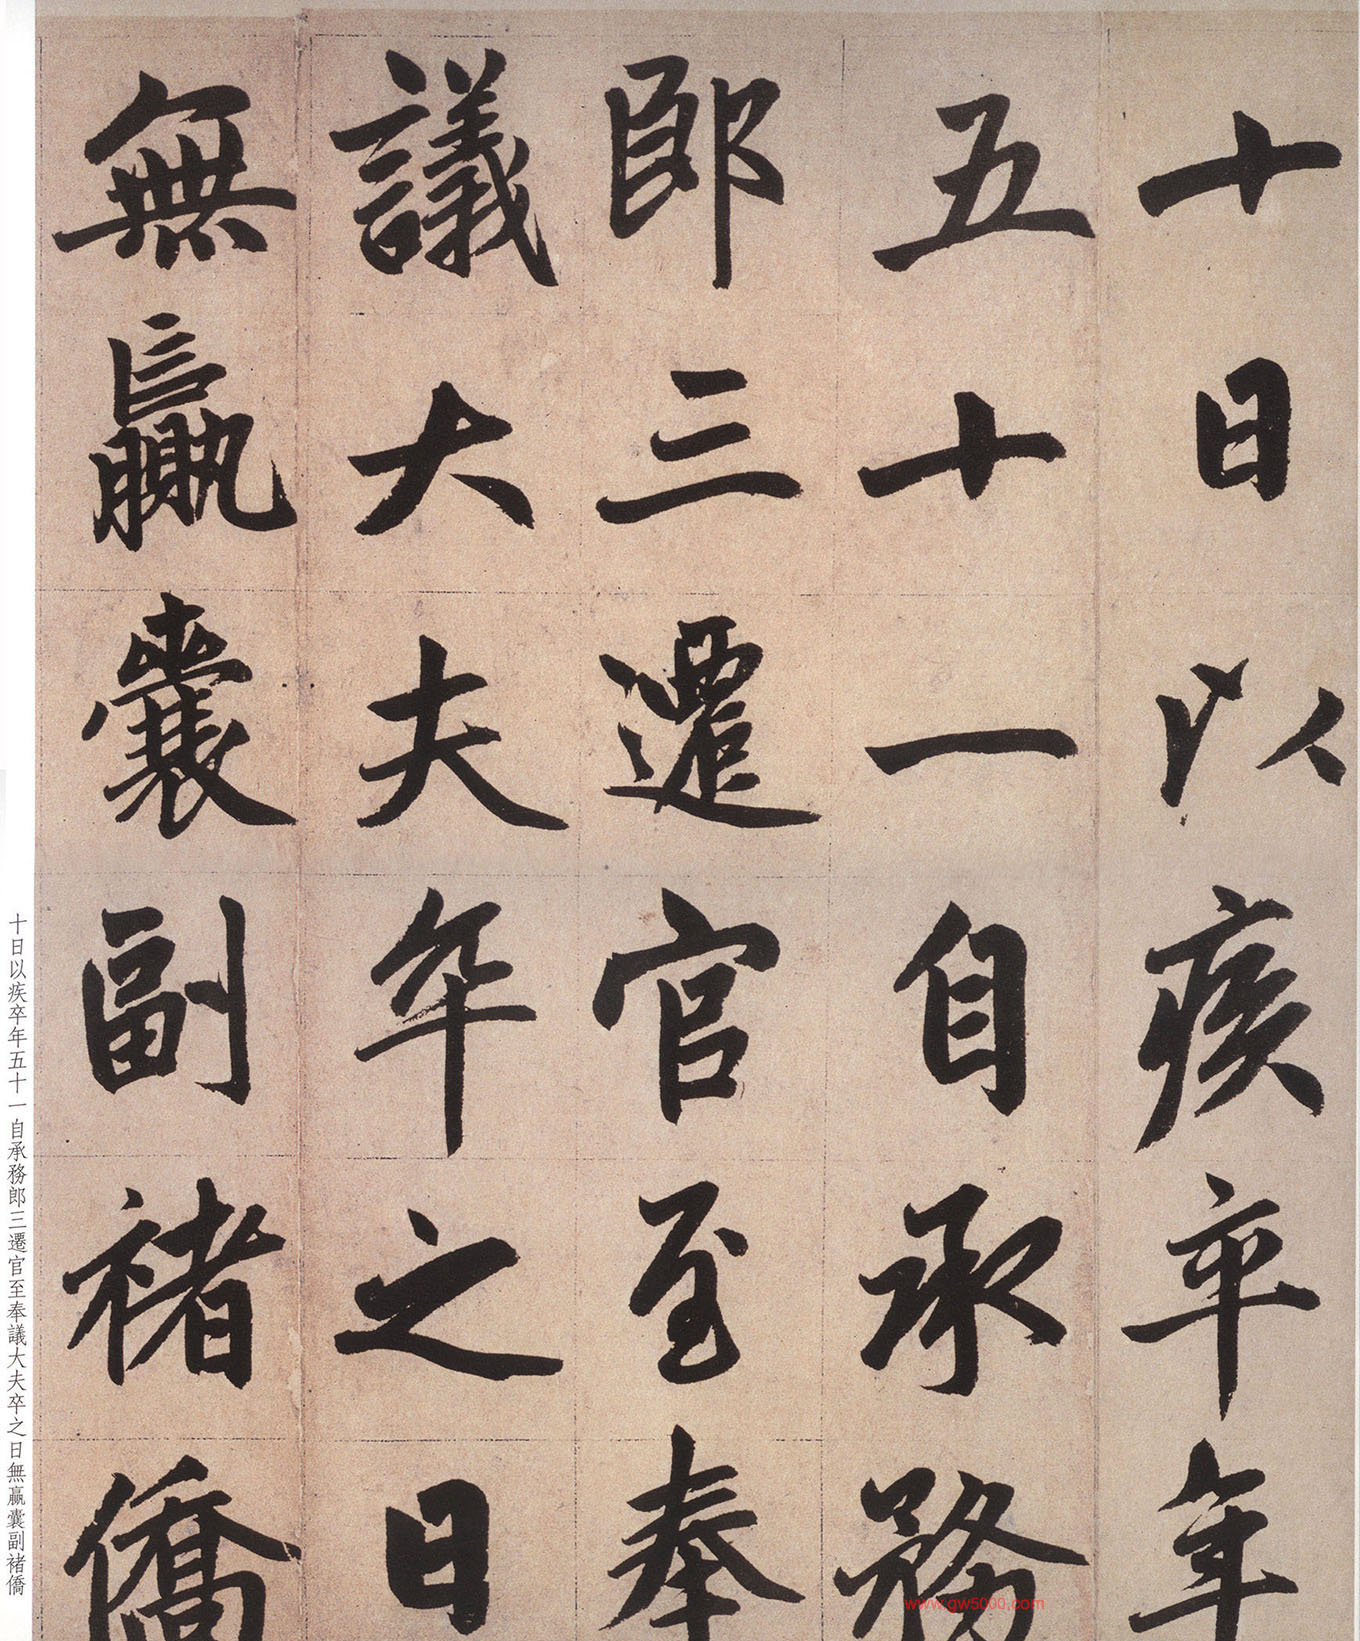 十日以疾卒年
五十一自承務
郎三遷官至奉
議大夫卒之日
無贏囊副褚僑
十日以疾卒年五十一自承務郎三遷官至奉議大夫卒之日無贏囊副褚僑
www.gw5000.com